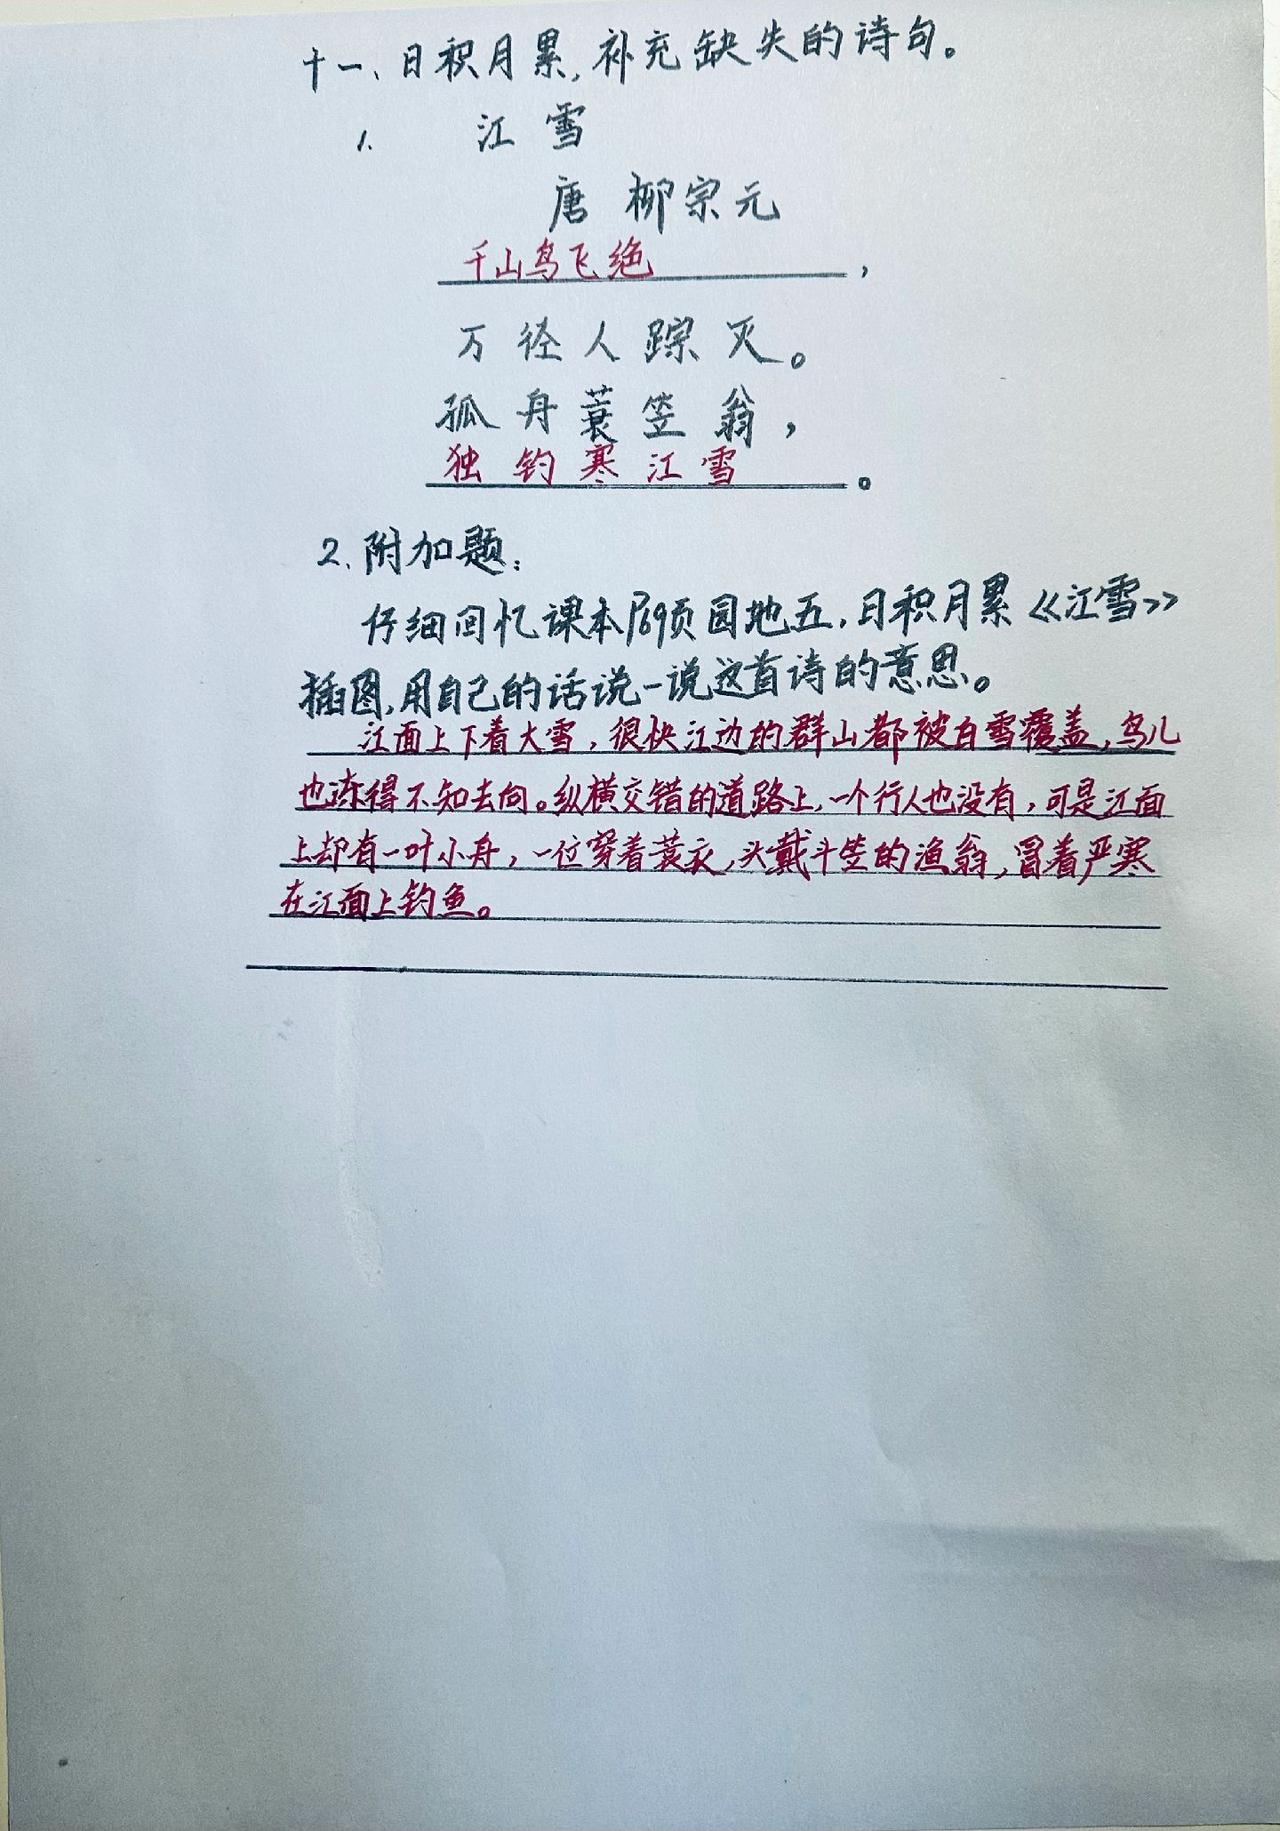 十一、日积月累,补充缺失的诗句。
1. 江雪
唐 柳宗元
千山鸟飞绝,
万径人踪灭。
孤舟蓑笠翁,
独钓寒江雪。
2.附加题:
仔细回忆课本P69页园地五,日积月累《江雪》
插图,用自己的话说一说这首诗的意思。
江面上下着大雪,很快江边的群山都被白雪覆盖,鸟儿
也冻得不知去向。纵横交错的道路上,一个行人也没有,可是江面
上却有一叶小舟,一位穿着蓑衣,头戴斗笠的渔翁,冒着严寒
在江面上钓鱼。